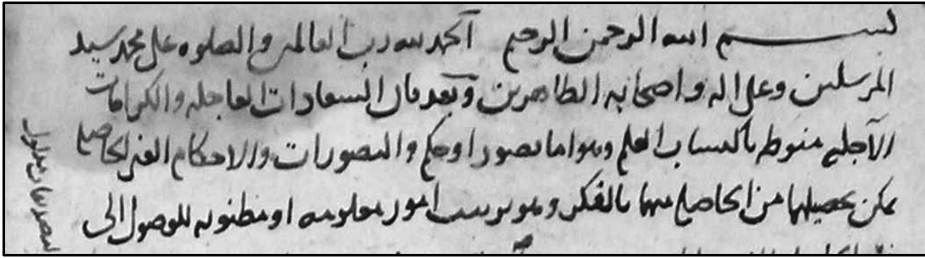 بسم الله الرحمن الرحيم الحمد لله رب العالمين والصلوه على محمد سيد
المرسلين وعلى اله واصحابه الطاهرين وبعد فان السعادات العاجله والكرامات
الآجله منوطه باكتساب العلم وهو اما تصور او حكم والتصورات والاحكام الغير الحاصله
يمكن تحصيلها من الحاصله منها بالفكر وهو ترتيب امور معلومه او مظنونه للوصول الى